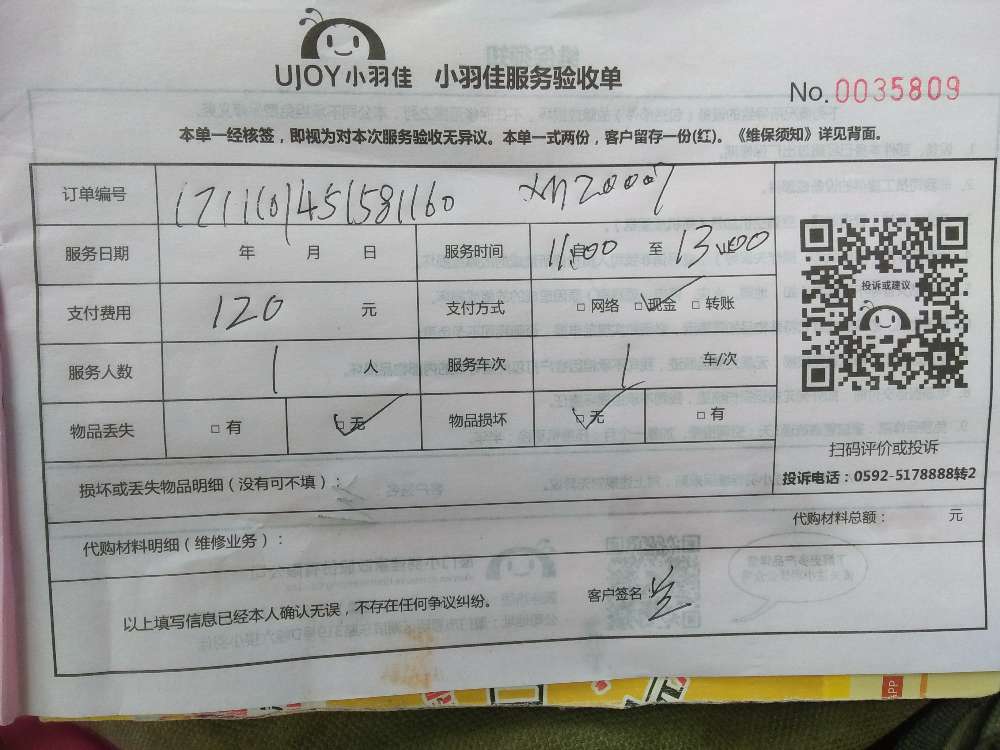 UJOY小羽佳 小羽佳服务验收单
No.0035809
本单一经核签，即视为对本次服务验收无异议。本单一式两份，客户留存一份(红)。《维保须知》详见背面。
订单编号
服务日期 年 月 日 服务时间 11:00 自 至 13:00
支付费用 120 元 支付方式 □ 网络 □ 现金 □ 转账
服务人数 1 人 服务车次 1 车/次
物品丢失 □ 有 □ 无 物品损坏 □ 无 □ 有
投诉或建议
扫码评价或投诉
投诉电话：0592-5178888转2
损坏或丢失物品明细（没有可不填）：
代购材料明细（维修业务）：
代购材料总额： 元
以上填写信息已经本人确认无误，不存在任何争议纠纷。
客户签名：